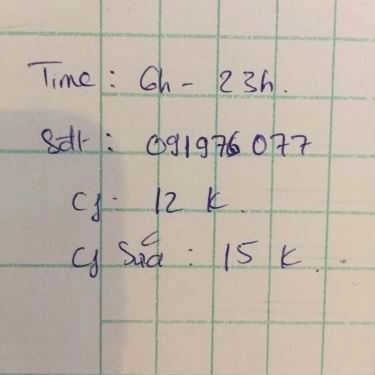 Time : 6h - 23h.
Sdt : 091976077
Cf : 12 K.
Cf Sữa : 15 K.